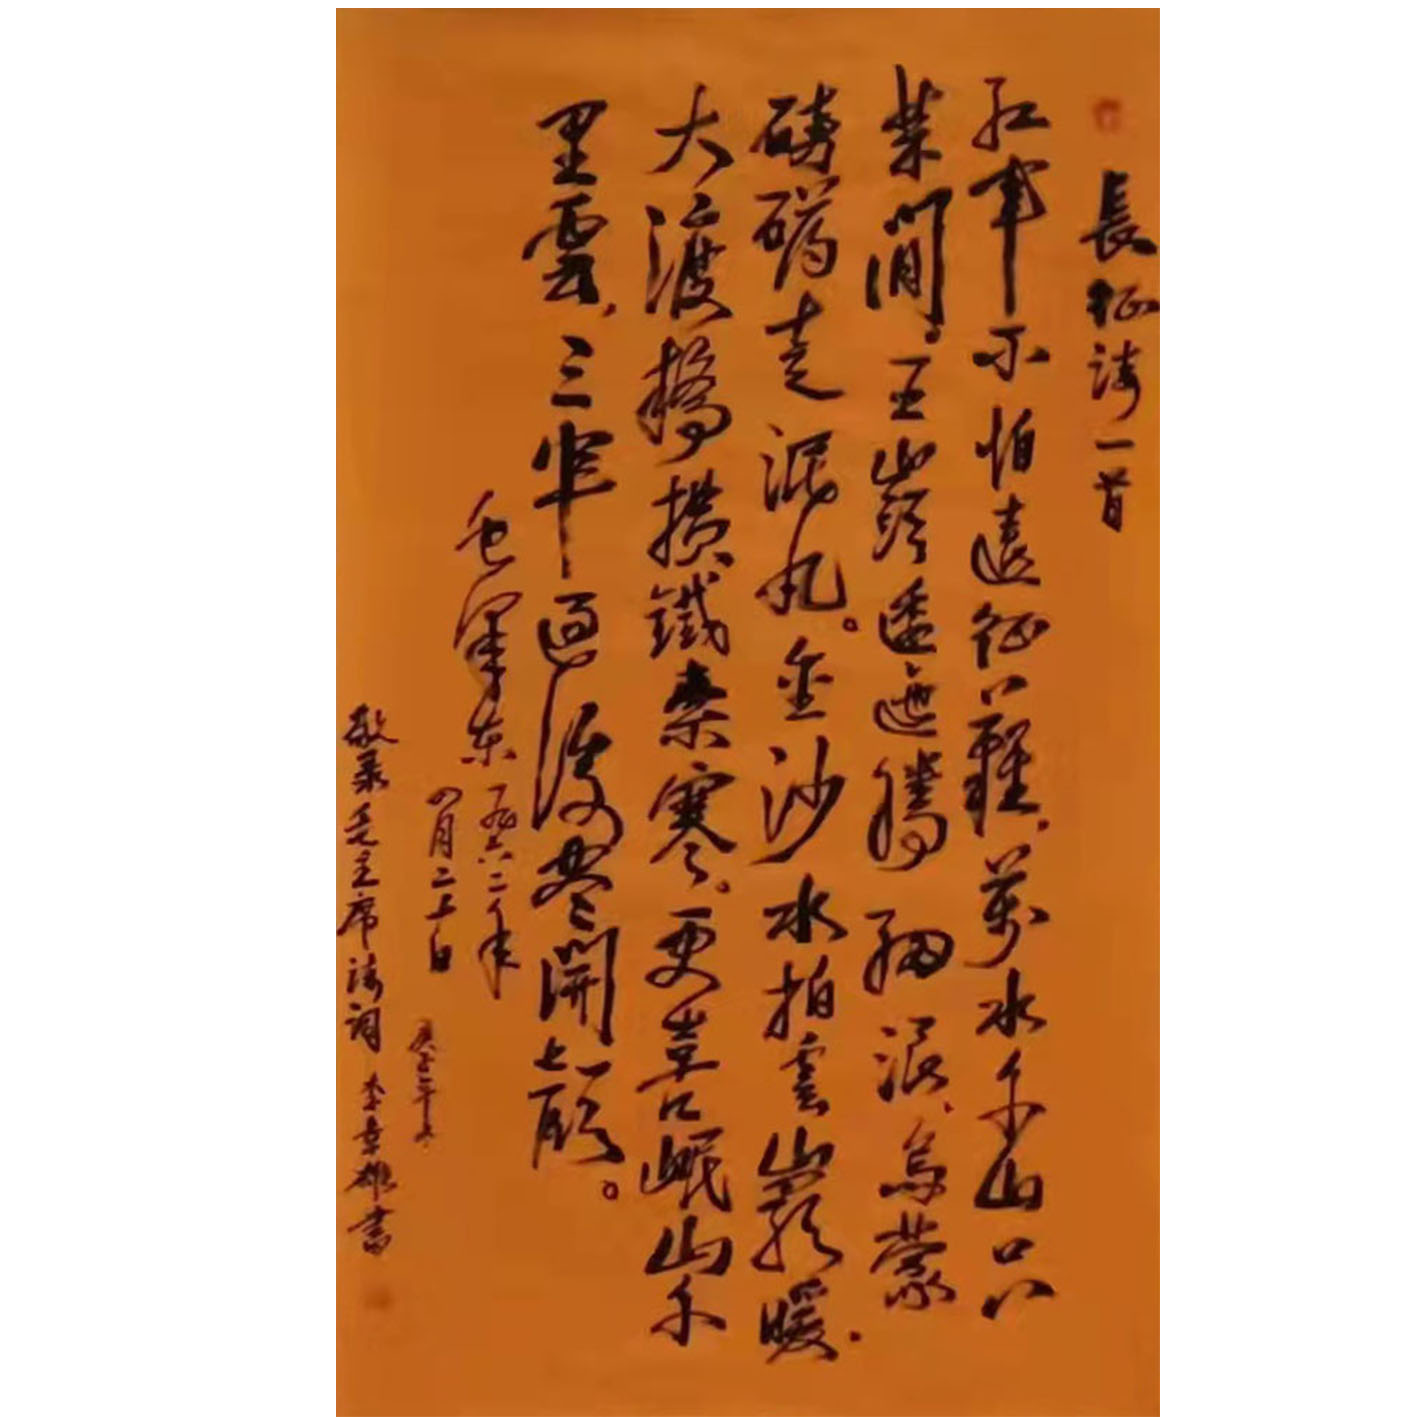 長征詩一首
紅軍不怕遠征難，萬水千山只
等閒。五嶺逶迤騰細浪、烏蒙
磅礴走泥丸。金沙水拍雲巖暖，
大渡橋橫鐵索寒。更喜岷山千
里雪，三軍過後盡開顏。
毛澤東 一九六二年
四月二十日
庚子年冬
敬录毛主席詩詞 李章雄書